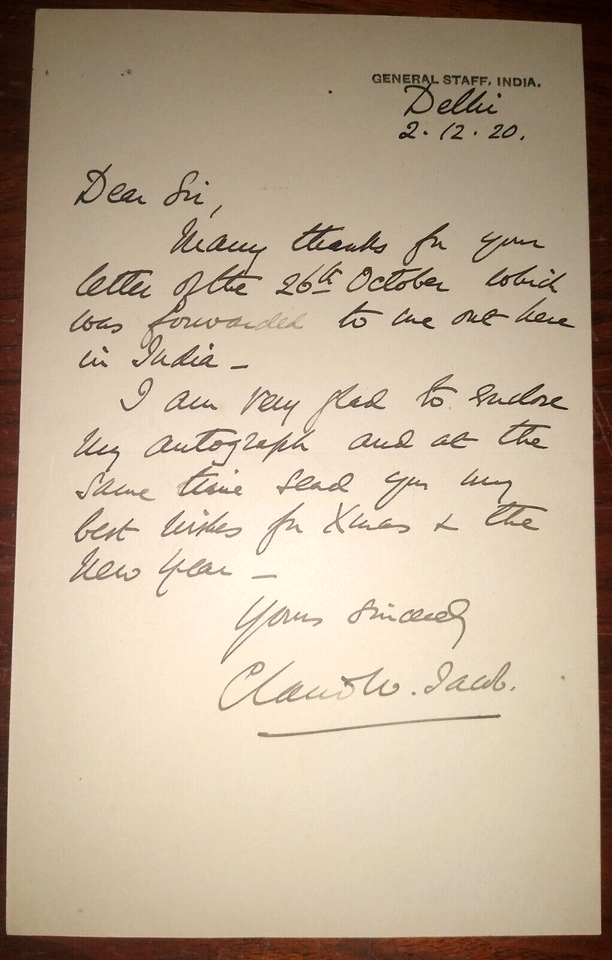 GENERAL STAFF, INDIA.
Delhi
2.12.20.
Dear Sir,
Many thanks for your
letter of the 26th October which
was forwarded to me out here
in India –
I am very glad to enclose
my autograph and at the
same time send you my
best wishes for Xmas & the
New Year –
Yours sincerely
Claud W. Jacob.